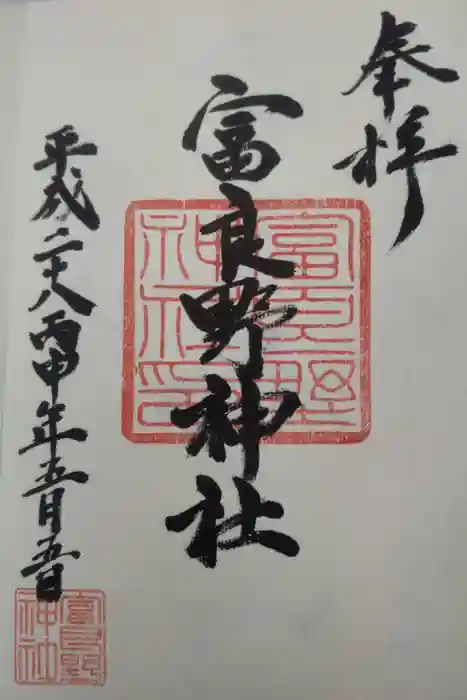 奉拝
富良野神社
平成二十八丙申年五月五日
富良野
神社印
富良野
神社